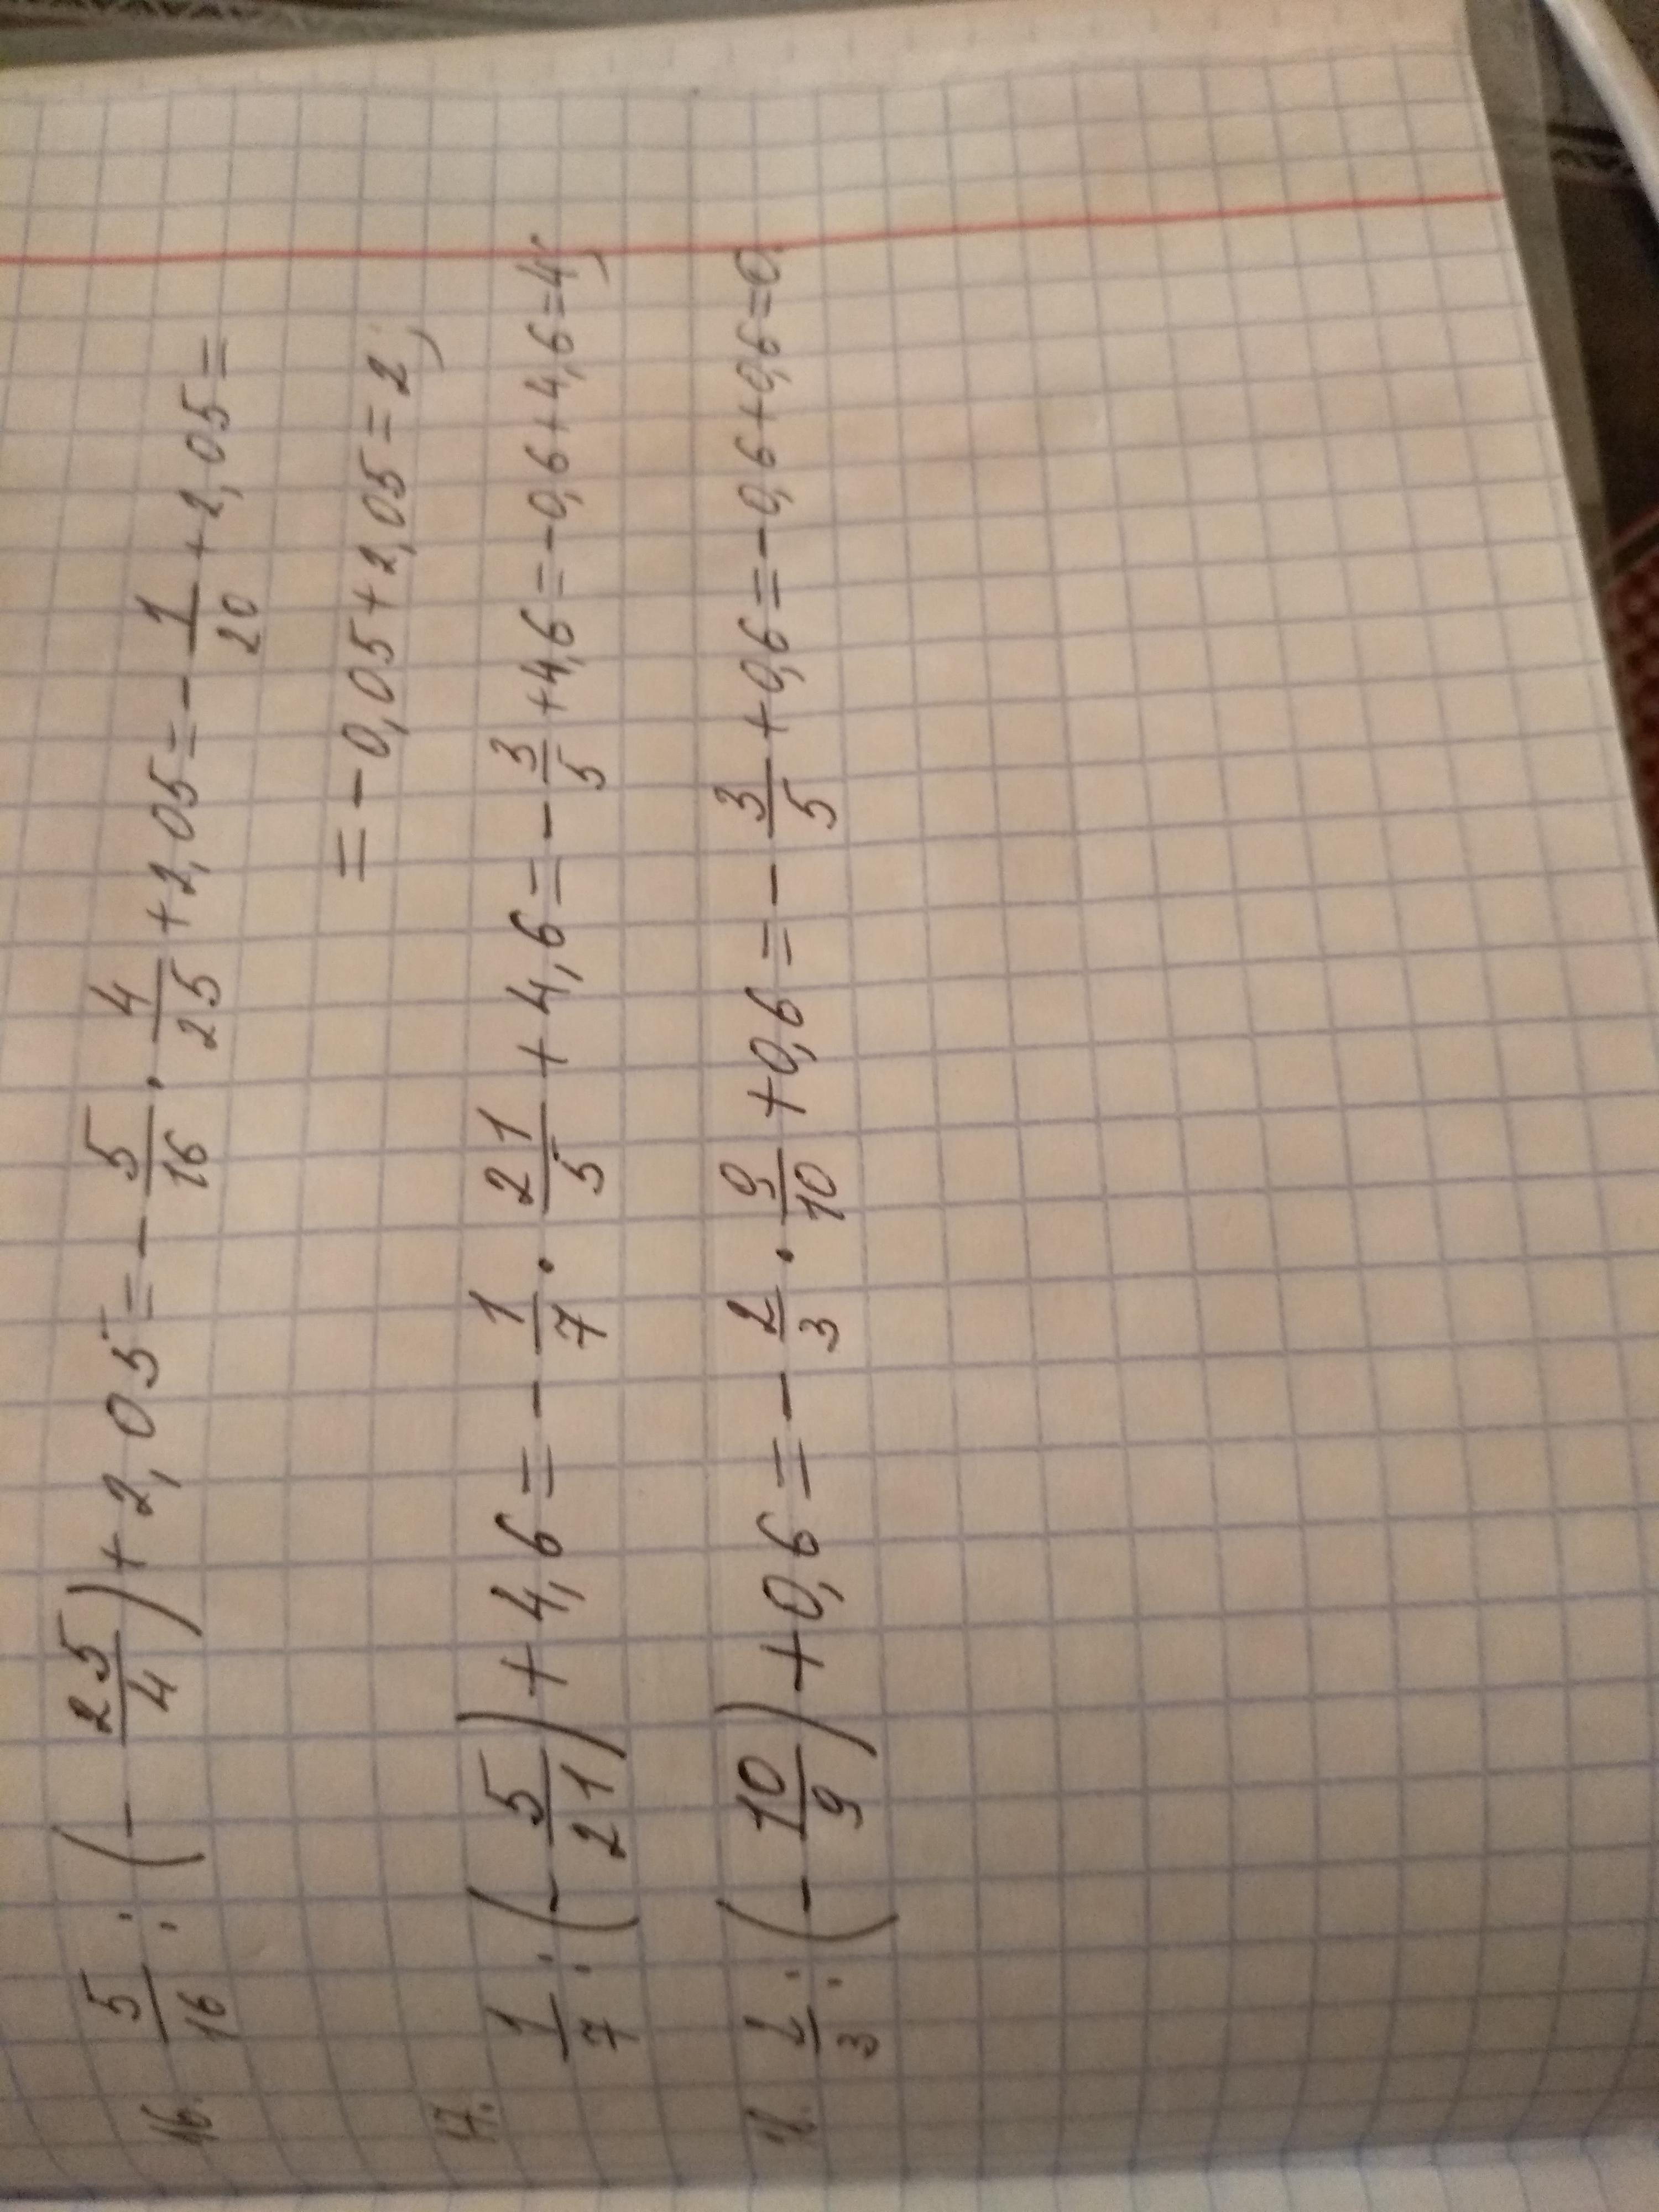 16. 5/16 : (- 25/4) + 2,05 = - 5/16 · 4/25 + 2,05 = - 1/20 + 2,05 =
= - 0,05 + 2,05 = 2;
17. 1/7 : (- 5/21) + 4,6 = - 1/7 · 21/5 + 4,6 = - 3/5 + 4,6 = - 0,6 + 4,6 = 4;
18. 2/3 : (- 10/9) + 0,6 = - 2/3 · 9/10 + 0,6 = - 3/5 + 0,6 = - 0,6 + 0,6 = 0.